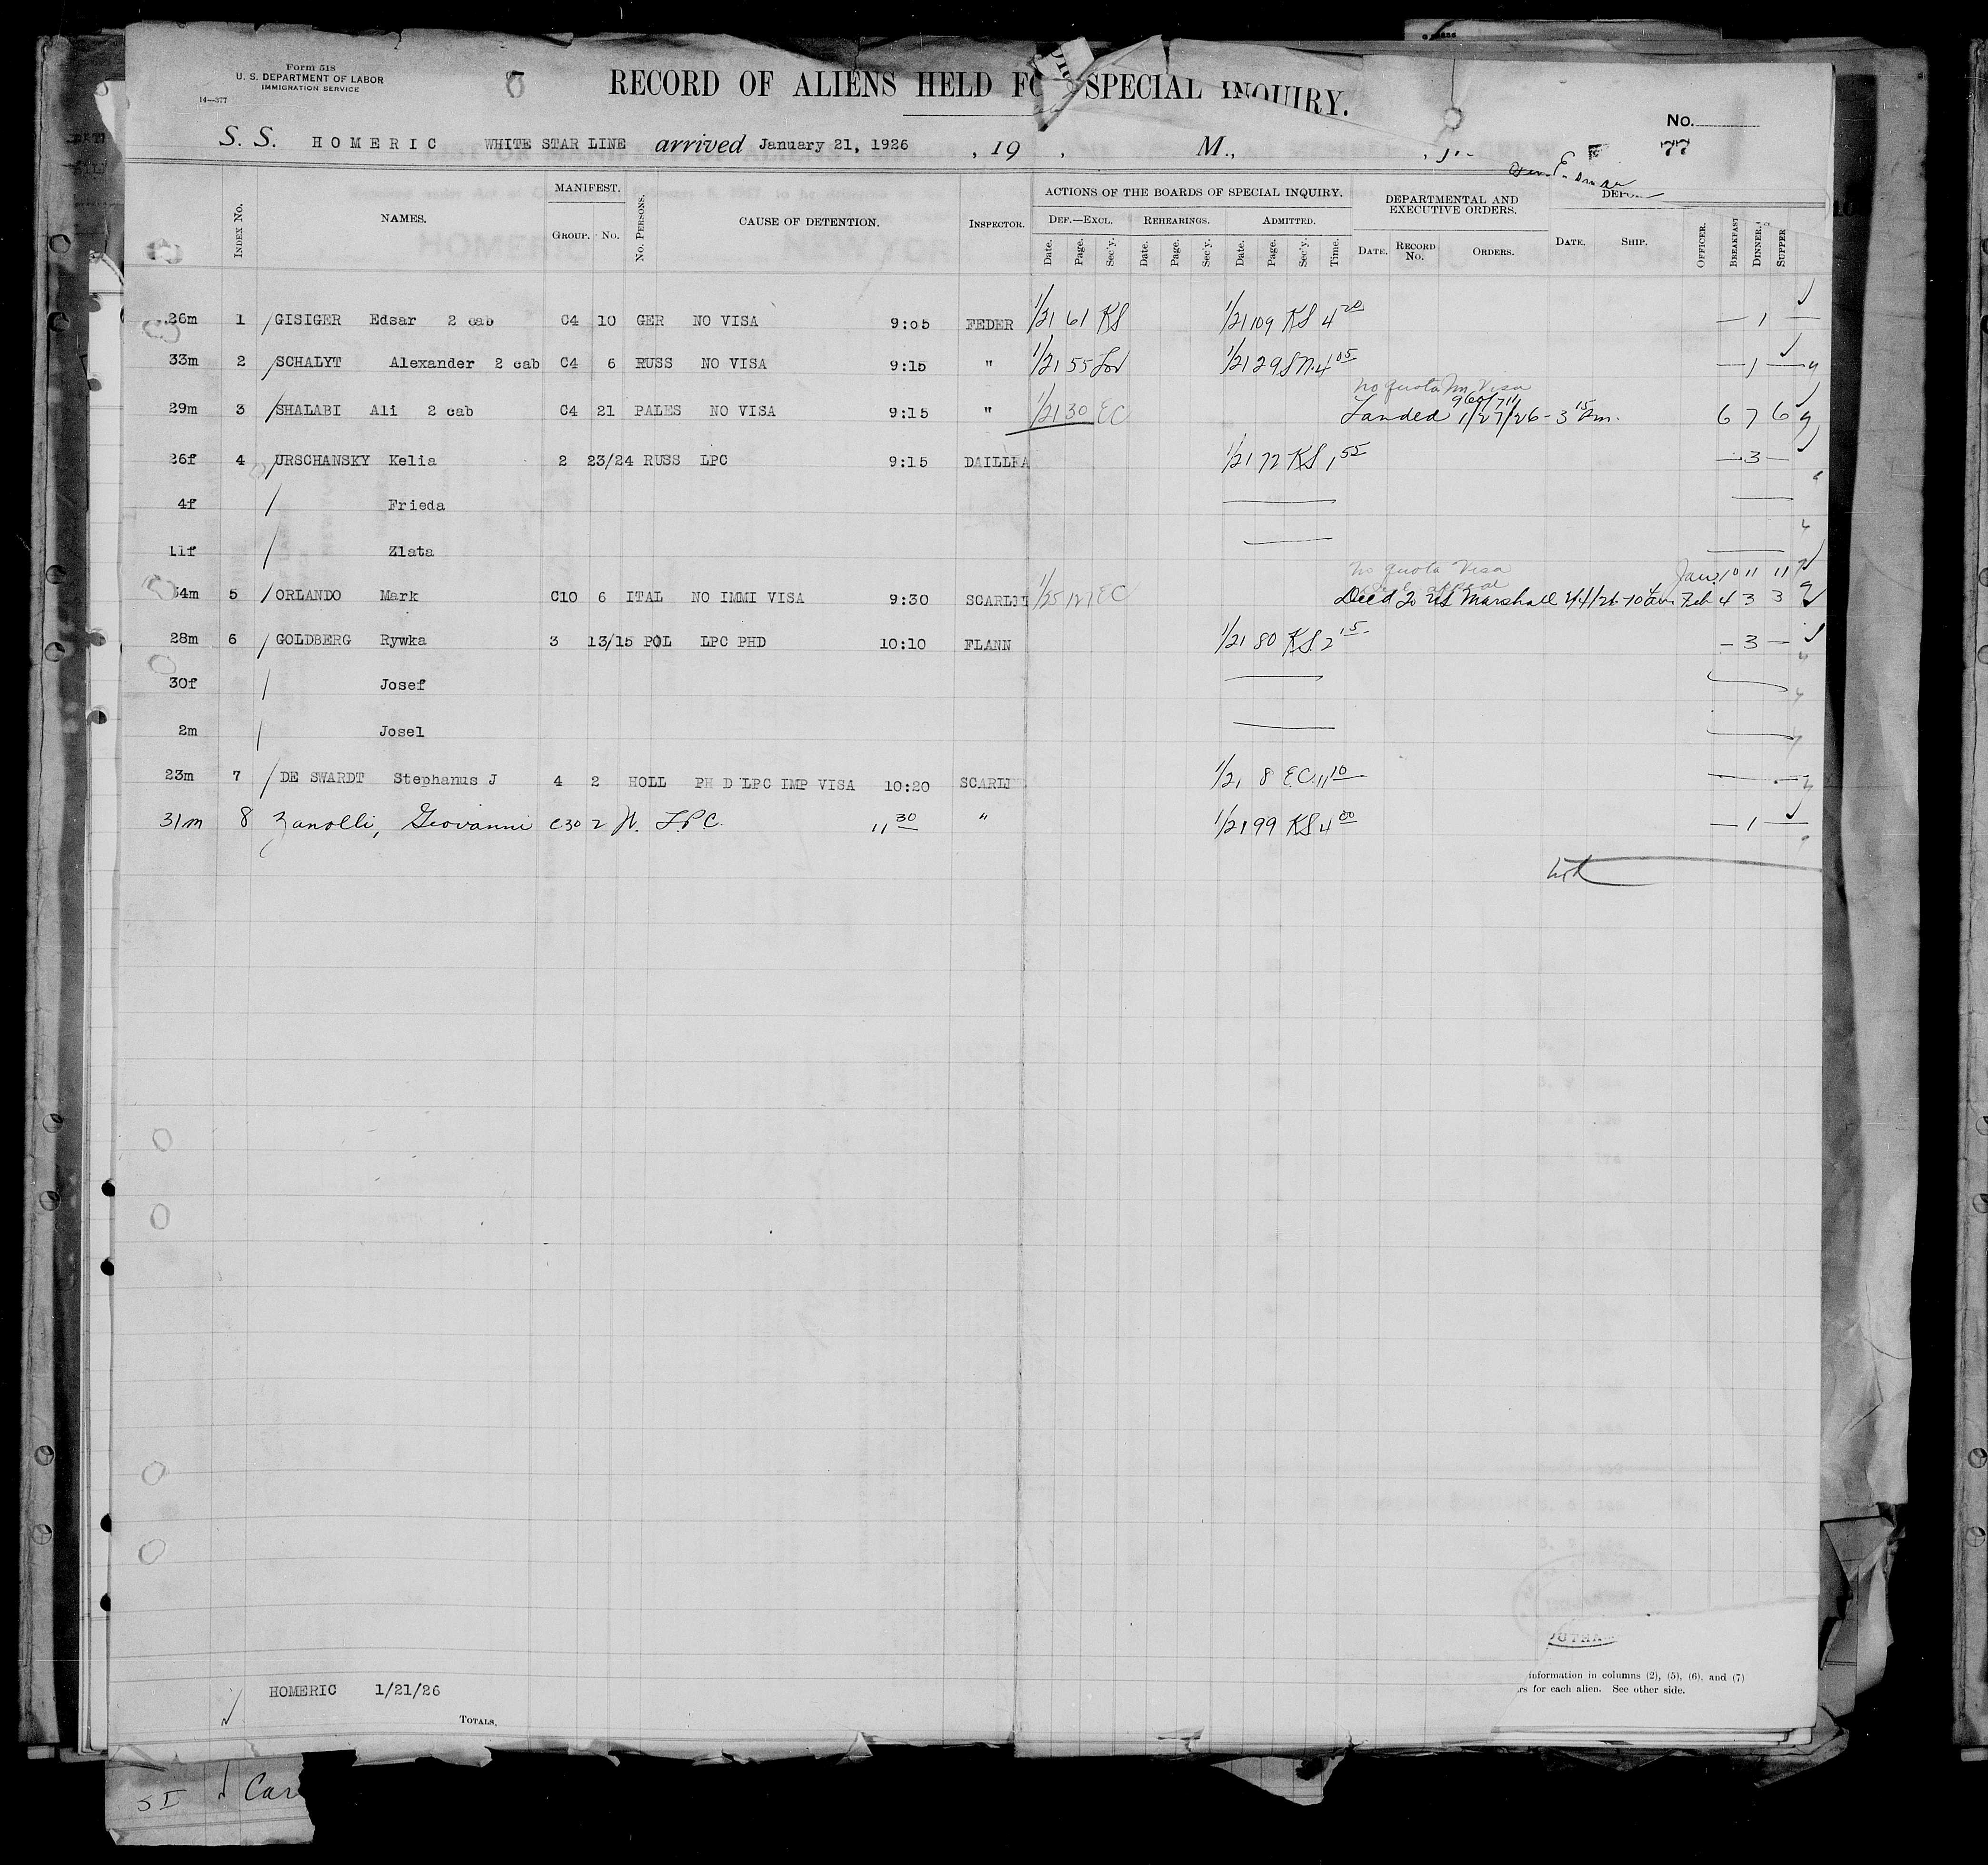 Form 518
U. S. DEPARTMENT OF LABOR
IMMIGRATION SERVICE
14—377
RECORD OF ALIENS HELD FO SPECIAL INQUIRY.
No.
77
S. S. HOMERIC WHITE STAR LINE arrived January 21, 1926 , 19 , M.,
INDEX No. NAMES. MANIFEST. GROUP. No. No. PERSONS. CAUSE OF DETENTION. INSPECTOR. ACTIONS OF THE BOARDS OF SPECIAL INQUIRY. DEPARTMENTAL AND EXECUTIVE ORDERS.
DEF.—EXCL. REHEARINGS. ADMITTED.
Date. Page. Sec'y. Date. Page. Sec'y. Date. Page. Sec'y. Time. DATE. RECORD No. ORDERS. DATE. SHIP. OFFICER. BREAKFAST DINNER. SUPPER
26m 1 GISIGER Edsar 2 cab C4 10 GER NO VISA 9:05 FEDER 1/21 61 KS 1/21 109 KS 4 20 — 1 —
33m 2 SCHALYT Alexander 2 cab C4 6 RUSS NO VISA 9:15 " 1/21 55 1/21 29 4 05 — 1 —
no quota Visa
29m 3 SHALABI Ali 2 cab C4 21 PALES NO VISA 9:15 " 1/21 30 EC Landed 1/27/26 - 3 15 6 7 6
26f 4 URSCHANSKY Kelia 2 23/24 RUSS LPC 9:15 DAILLEA 1/21 72 KS 1 55 — 3 —
4f Frieda
11f Zlata
no quota Visa Jan. 10 11 11
54m 5 ORLANDO Mark C10 6 ITAL NO IMMI VISA 9:30 SCARLE 1/25 121 EC Deld to US Marshall 2/4/26 - 10 Feb 4 3 3
28m 6 GOLDBERG Rywka 3 13/15 POL LPC PHD 10:10 FLANN 1/21 80 KS 2 15 — 3 —
30f Josef
2m Josel
23m 7 DE SWARDT Stephanus J 4 2 HOLL PH D LPC IMP VISA 10:20 SCARL 1/21 8 EC 11 10
31m 8 Zanolli, Giovanni C30 2 LPC. 11 30 " 1/21 99 KS 4 00 — 1 —
information in columns (2), (5), (6), and (7)
rs for each alien. See other side.
HOMERIC 1/21/26
TOTALS,
SI Car